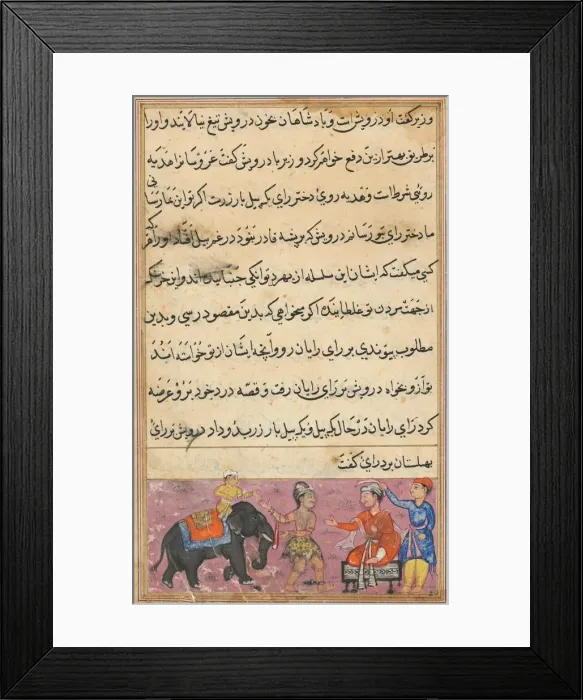 وزیر گفت او درویش است و پادشاهان بخون درویش تیغ نیالایند و او را
بر طریق بهتر ازین دفع خواهم کرد وزیر با درویش گفت عروسانرا هدیه
روئی شرط است و هدیه روی دختر رای یک پیل بار زرست اگر تو این
ما دختر رای بتو رسانم درویش که بر پشه قادر نبود در غم پیل افتاد و از هر
کسی میگفت که ایشان این سلسله از بهر دیوانگی جنبانیده اند و این
از جهت بردن تو غلطانیده اگر میخواهی که بدین مقصود رسی و بدین
مطلوب پیوندی بر رای رایان رو و آنچه ایشان از تو خواسته اند
تو ازو بخواه درویش بر رای رایان رفت و قصه درد خود برو عرضه
کرد رای رایان در حال یک پیل و یک پیل بار زر بدو داد درویش بر رای
بهلستان برد رای گفت